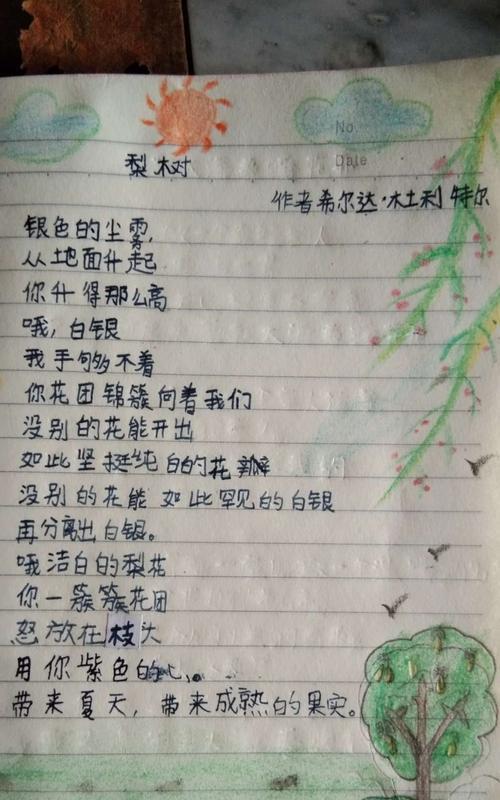 No.
Date
梨树
作者希尔达·杜利特尔
银色的尘雾,
从地面升起
你升得那么高
哦,白银
我手够不着
你花团锦簇向着我们
没别的花能开出
如此坚挺纯白的花瓣
没别的花能如此罕见的白银
再分离出白银。
哦洁白的梨花
你一簇簇花团
怒放在枝头
用你紫色的心。
带来夏天,带来成熟的果实。